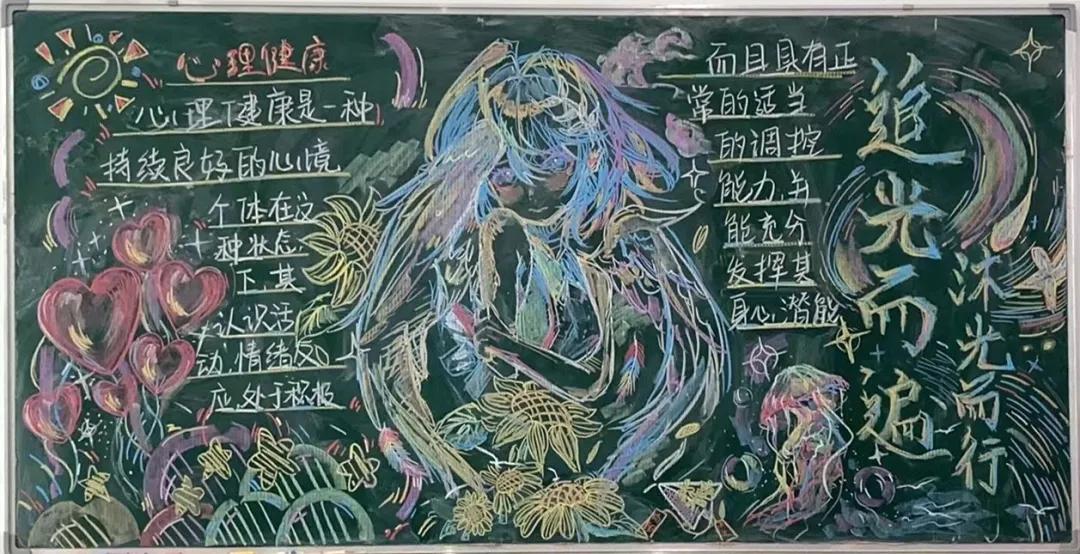 心理健康
心理健康是一种
持续良好的心境
个体在这
种状态
下,其
认识活
动,情绪反
应,处于积极
而且具有正
常的适当
的调控
能力,并
能充分
发挥其
身心,潜能
追光而遍
沐光而行